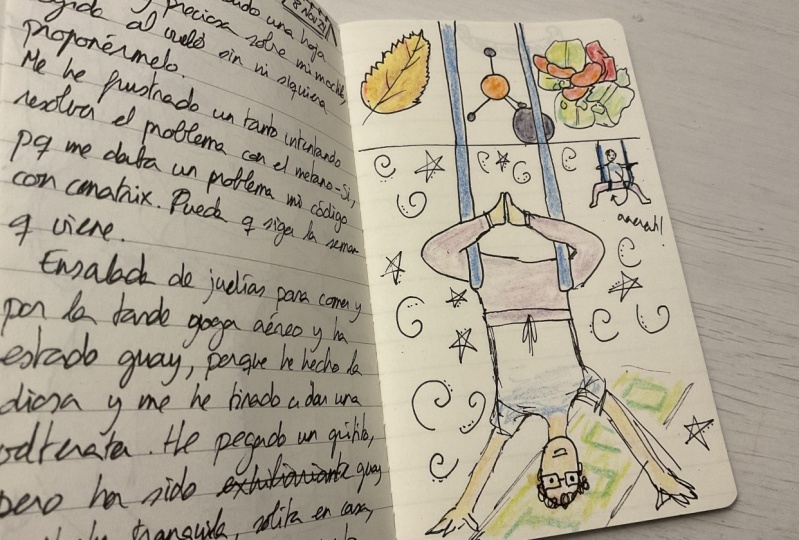 8 NOV 24
ando una hoja
y preciosa sobre mi mochila,
ogido al vuelo sin ni siquiera
proponérmelo.
Me he frustrado un tanto intentando
resolver el problema con el metano-Si,
pq me daba un problema mi código
con conatrix. Puede q siga la seman
q viene.
Ensalada de judías para comer y
por la tarde yoga aéreo y ha
estado guay, porque he hecho la
diosa y me he tirado a dar una
voltereta. He pegado un gritito,
pero ha sido guay
tranquila, solita en casa,
aaaah!